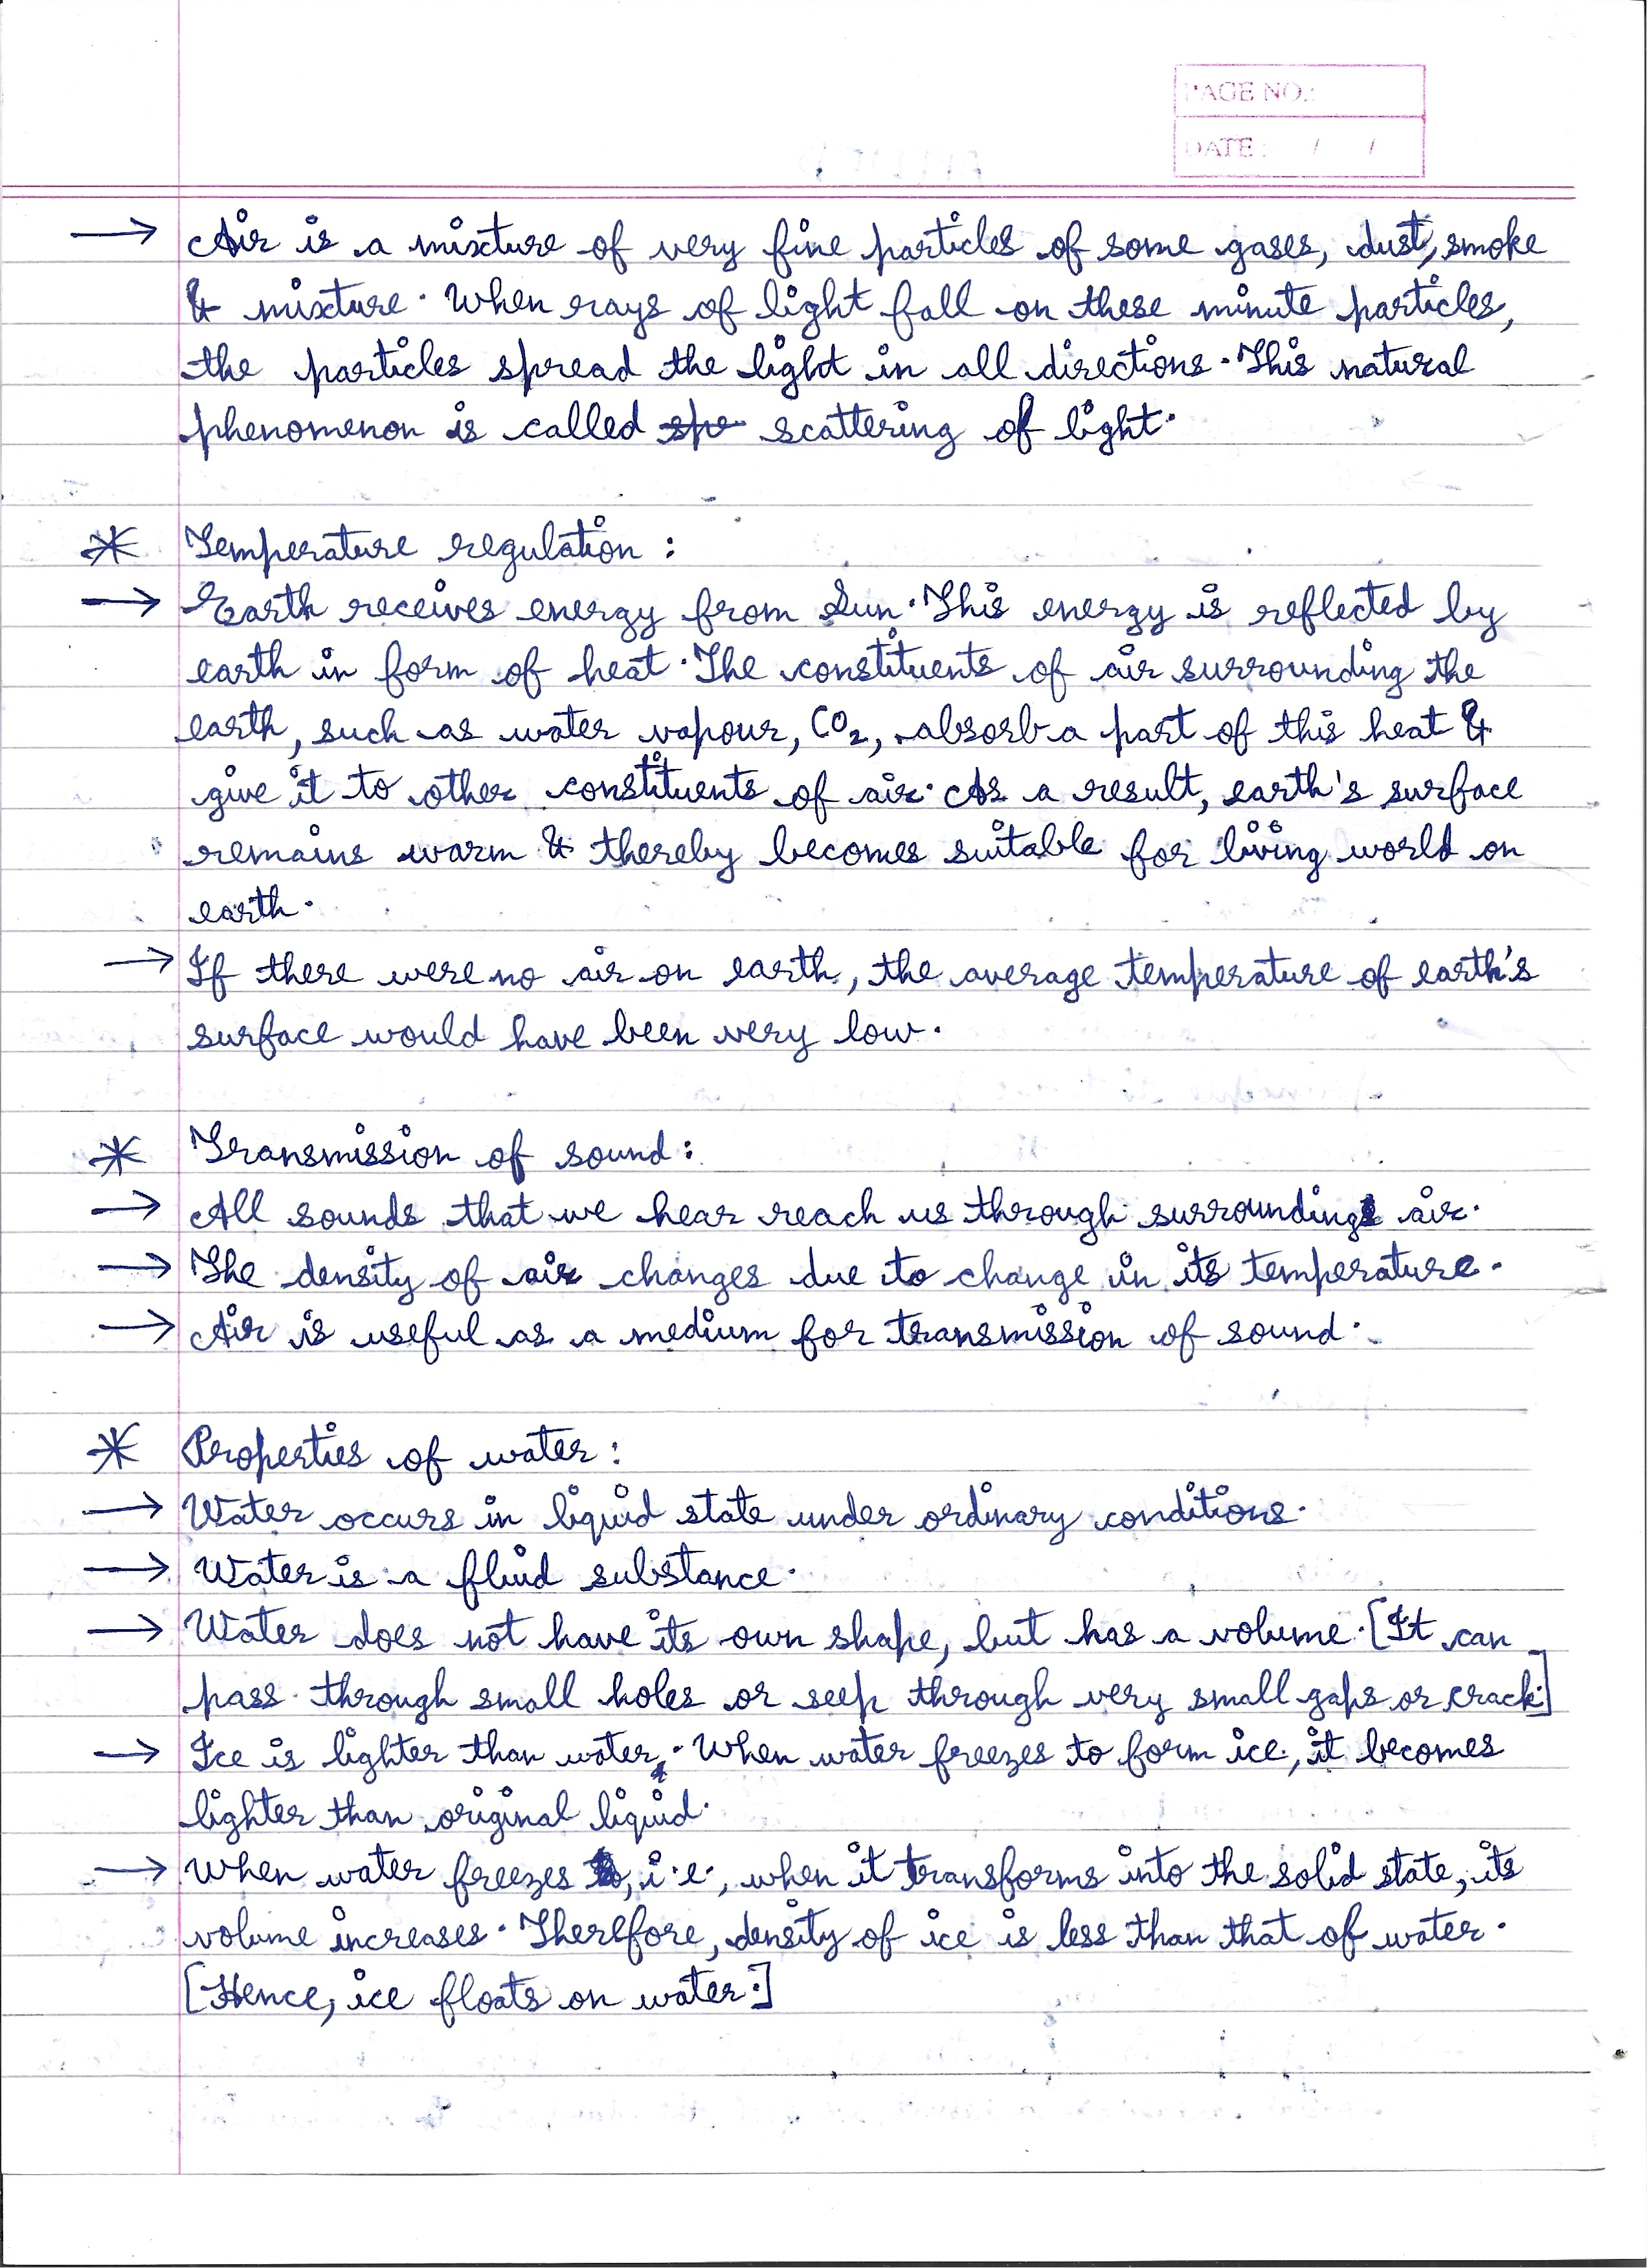 PAGE NO.:
DATE: / /
→ Air is a mixture of very fine particles of some gases, dust, smoke
& mixture. When rays of light fall on these minute particles,
the particles spread the light in all directions. This natural
phenomenon is called spe scattering of light.
* Temperature regulation :
→ Earth receives energy from Sun. This energy is reflected by
earth in form of heat. The constituents of air surrounding the
earth, such as water vapour, CO₂, absorb a part of this heat &
give it to other constituents of air. As a result, earth's surface
remains warm & thereby becomes suitable for living world on
earth.
→ If there were no air on earth, the average temperature of earth's
surface would have been very low.
* Transmission of sound :
→ All sounds that we hear reach us through surrounding air.
→ The density of air changes due to change in its temperature.
→ Air is useful as a medium for transmission of sound.
* Properties of water :
→ Water occurs in liquid state under ordinary conditions.
→ Water is a fluid substance.
→ Water does not have its own shape, but has a volume. [It can
pass through small holes or seep through very small gaps or crack.]
→ Ice is lighter than water. When water freezes to form ice, it becomes
lighter than original liquid.
→ When water freezes, i.e., when it transforms into the solid state, its
volume increases. Therefore, density of ice is less than that of water.
[Hence, ice floats on water.]